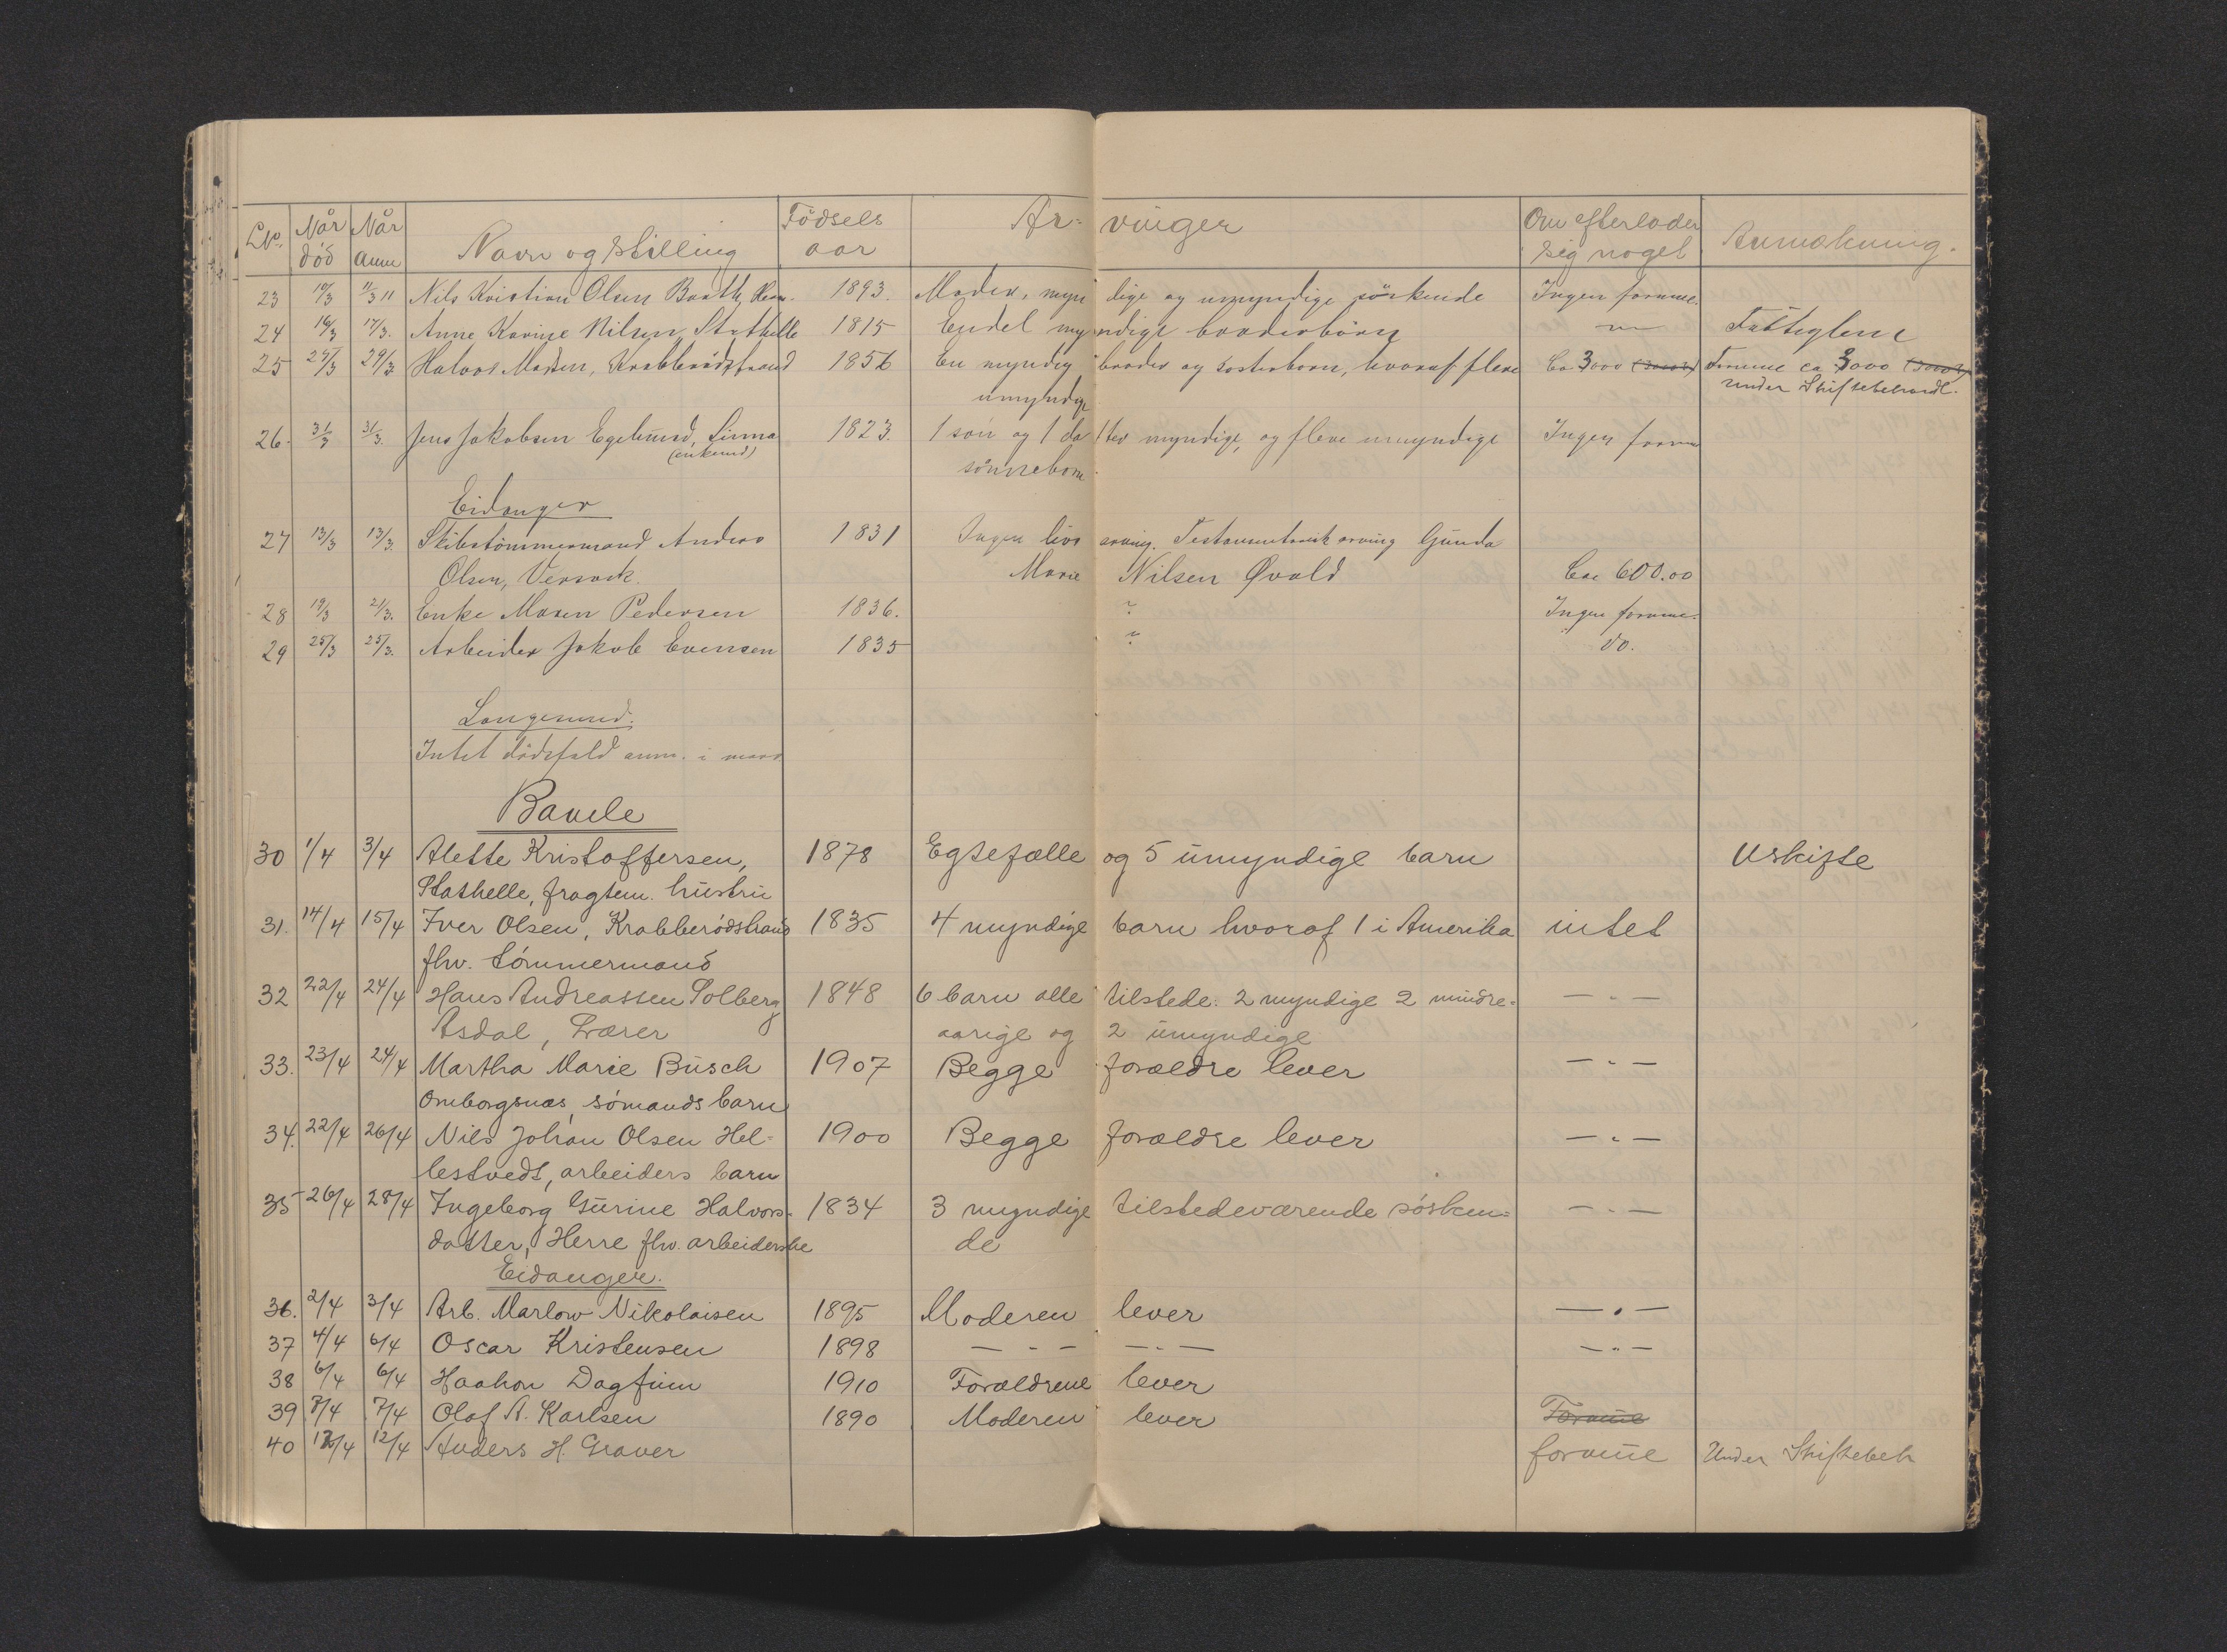 LNo. Når død Når anm Navn og stilling Fødsels aar Ar- vinger Om efterlader sig noget Anmerkning.
23 10/3 11/3 11 Nils Kristian Olsen Baath, 1893. Moder, myn dige og umyndige søskende Ingen formue.
24 16/3 17/3. Anne Karine Nilsen, Stathelle 1815 Endel myndige broderbörn — " — Fattiglem
25 27/3 29/3. Halvor Madsen, Krabberödstrand 1856 En myndig broder og sösterborn, hvoraf flere Ca 3000 Formue ca 3000
umyndige under Skiftebehandl.
26. 31/3 31/3. Jens Jakobsen Egelund, Linna 1823. 1 søn og 1 da tter myndige, og flere umyndige Ingen formue
(enkemd) sönneborn.
Eidanger
27 13/3 13/3. Skibstömmermand Anders 1831 Ingen livs arving. Testamentarisk arving Gunda
Olsen, Versvik. Marie Nilsen Øvald Ca 600.00
28 19/3 21/3. Enke Maren Pedersen 1836. ? Ingen formue.
29 25/3 25/3. Arbeider Jakob Evensen 1835 ? do.
Langesund.
Intet dödsfald anm. i mars
Bamle
30 1/4 3/4 Alette Kristoffersen, 1878 Egtefælle og 5 umyndige barn Uskifte
Stathelle, fragtem. hustru
31. 14/4 15/4 Iver Olsen, Krabberödstrand 1835 4 myndige barn hvoraf 1 i Amerika intet
fhv. tömmermand
32 22/4 24/4 Hans Andreassen Solberg 1848 6 barn alle tilstede. 2 myndige 2 mindre- — " —
Asdal, Lærer aarige og 2 umyndige
33. 23/4 24/4 Martha Marie Busch 1907 Begge forældre lever — " —
Omborgsnæs, sömands barn
34. 22/4 26/4 Nils Johan Olsen Hel- 1900 Begge forældre lever — " —
lestvedt, arbeiders barn
35 26/4 28/4 Ingeborg Gurine Halvors- 1834 3 myndige tilstedeværende sösken- — " —
datter, Herre fhv. arbeiderske de
Eidanger.
36. 2/4 3/4 Arb. Marlow Nikolaisen 1895 Moderen lever — " —
37 4/4 6/4 Oscar Kristensen 1898 — " — — " — — " —
38 6/4 6/4 Haakon Dagfinn 1910 Forældrene lever
39 7/4 7/4 Olaf A. Karlsen 1890 Moderen lever Formue
40 12/4 12/4 Anders H. Graver formue Under Skiftebeh